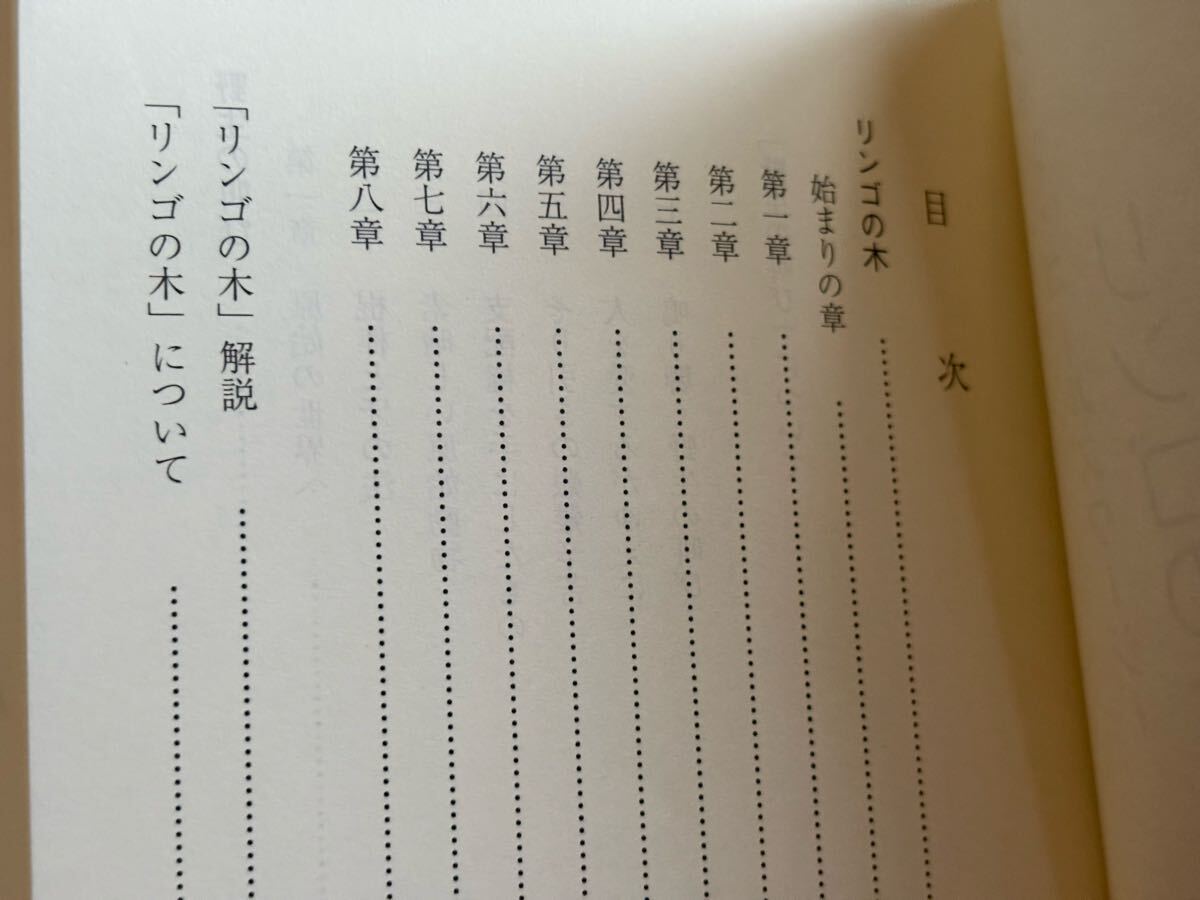 目次
リンゴの木
始まりの章
第一章
第二章
第三章
第四章
第五章
第六章
第七章
第八章
「リンゴの木」解説
「リンゴの木」について